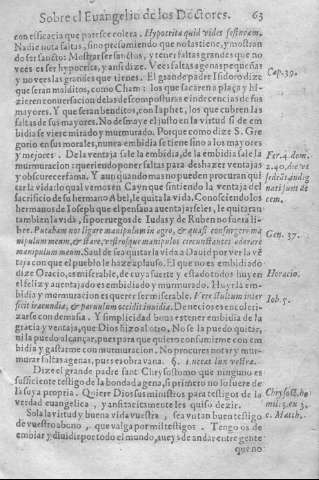 Sobre el Euangelio de los Doctores. 63
con efficacia que pareſce colera. Hypocrita quid vides feſtucam,
Nadie nota faltas, ſino preſumiendo que no las tiene, y moſtran
do ſer ſancto: Moſtrar ſer ſanctos, y tener faltas grandes que no
vees es ſer hypocreta, y anſi dize. Vees faltas agenas pequeñas
y no vees las grandes que tienes. El grande padre Iſidoro dize
que ſeran malditos, como Cham: los que ſacaren a plaça y hi-
zieren conuerſacion de las deſcompoſturas e indecencias de ſus
mayores. Y que ſeran benditos, con Iaphet, los que cubren las
faltas de ſus mayores. No deſmaye el juſto en la virtud ſi de em
bidia ſe viere mirado y murmurado. Porque como dize S. Gre
gorio en ſus morales, nunca embidia ſe tiene ſino a los mayores
y mejores. De la ventaja ſale la embidia, de la embidia ſale la
murmuracion: queriendo poner faltas para deshazer ventajas
y obſcurecer fama. Y aun quando mas no pueden procuran qui
tar la vida: lo qual vemos en Cayn que ſintiendo la ventaja del
ſacrificio de ſu hermano Abel, le quita la vida. Conoſciendo los
hermanos de Ioſeph que el penſaua auentajarſeles, le quitaran
tambien la vida, ſi por ruegos de Iudas y de Ruben no fuera li-
bre. Putabam nos ligare manipulum in agro, & quaſi conſurgere ma
nipulum meum, & ſtare, veſtroſque manipulos circunſtantes adorare
manipulum meum. Saul deſea quitar la vida a Dauid por ver la vé
taja con que el pueblo le haze aplauſo. El que no es embidiado
dize Oracio, es miſerable, de cuya ſuerte y eſtado todos huyen
el feliz y auentajado es embidiado y murmurado. Huyr la em-
bidia y murmuracion es querer ſer miſerable. Vere ſtultum inter
ficit iracundia, & paruulum occidit inuidia. De necios es encoleri-
zarſe con demaſia. Y ſimplicidad bouas es tener embidia de la
gracia y ventaja, que Dios hizo al otro. No ſe la puedo quitar,
ni la puedo alcançar, pues para que quiero conſumirme con em
bidia y gaſtarme con murmuracion. No procures notar y mur-
murar faltas agenas, pues es obra vana. 6. luceat lux veſtra.
Dize el grande padre ſant Chryſoſtomo que ninguno es
ſufficiente teſtigo de la bondad agena, ſi primero no lo fuere de
la ſuya propria. Quiere Dios ſus miniſtros para teſtigos de la
verdad euangelica, y anſi tacitamente les quiſo dezir.
Sola la virtud y buena vida vueſtra, ſea vn tan buen teſtigo
de vueſtro abono, que valga por mil teſtigos. Tengo os de
embiar y diuidir por todo el mundo, aueys de andar entre gente
que no
Cap. 39.
Fer. 4. dom.
Gen. 37.
Horacio.
Iob. 5.
Chryſoſt. ho
mil. 3. ex 3.
c. Matth.